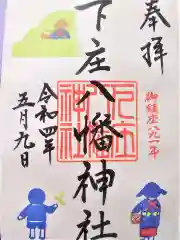 奉拝
御鎮座八九一年
下庄八幡神社
令和四年
五月九日